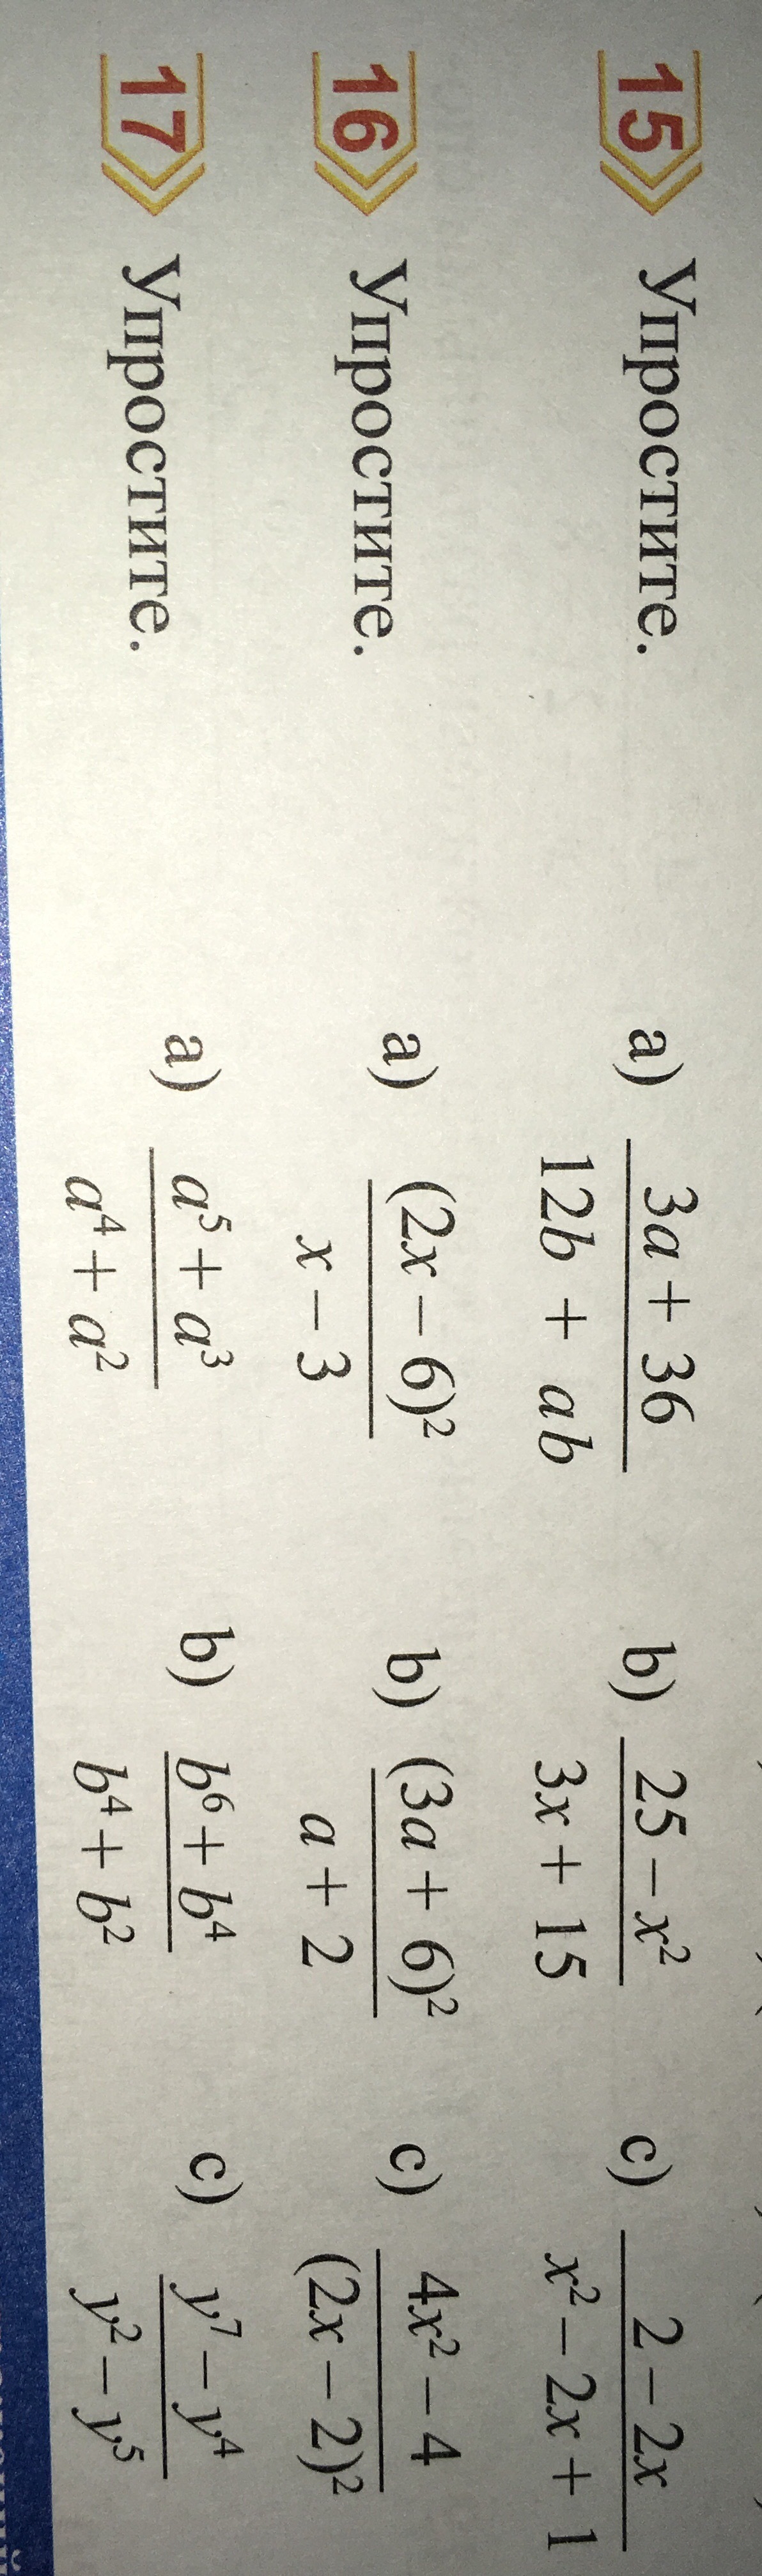 15 Упростите. a) (3a + 36)/(12b + ab) b) (25 – x²)/(3x + 15) c) (2 – 2x)/(x² – 2x + 1)
16 Упростите. a) (2x – 6)²/(x – 3) b) (3a + 6)²/(a + 2) c) (4x² – 4)/(2x – 2)²
17 Упростите. a) (a⁵ + a³)/(a⁴ + a²) b) (b⁶ + b⁴)/(b⁴ + b²) c) (y⁷ – y⁴)/(y² – y⁵)